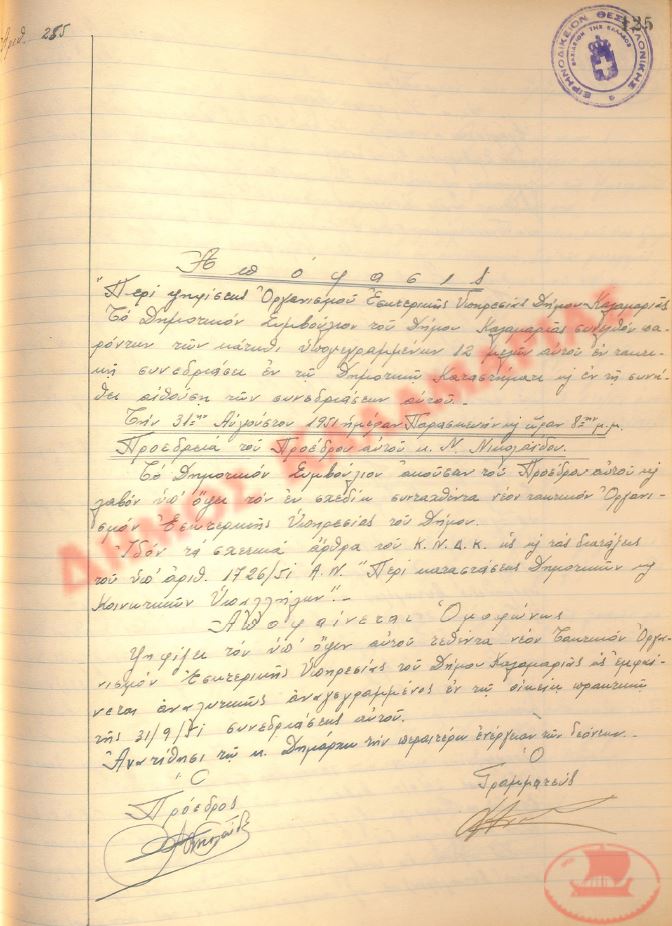 Ἀριθ. 285
125
ΕΙΡΗΝΟΔΙΚΕΙΟΝ ΘΕΣΣΑΛΟΝΙΚΗΣ
ΒΑΣΙΛΕΙΟΝ ΤΗΣ ΕΛΛΑΔΟΣ
Ἀπόφασις
"Περί ψηφίσεως Ὀργανισμοῦ Ἐσωτερικῆς Ὑπηρεσίας Δήμου Καλαμαριᾶς
Τό Δημοτικόν Συμβούλιον τοῦ Δήμου Καλαμαριᾶς συνελθόν πα-
ρόντων τῶν κάτωθι ὑπογεγραμμένων 12 μελῶν αὐτοῦ ἐν τακτι-
κῇ συνεδριάσει ἐν τῷ Δημοτικῷ Καταστήματι κ ἐν τῇ συνή-
θει αἰθούσῃ τῶν συνεδριάσεων αὐτοῦ.-
Τήν 31ην Αὐγούστου 1951 ἡμέραν Παρασκευήν κ ὥραν 8ην μ.μ.
Προεδρείᾳ τοῦ Προέδρου αὐτοῦ κ. Ν. Νικολαΐδου.
Τό Δημοτικόν Συμβούλιον ἀκοῦσαν τοῦ Προέδρου αὐτοῦ κ
λαβόν ὑπ' ὄψει τόν ἐν σχεδίῳ συνταχθέντα νέον τακτικόν Ὀργανι-
σμόν Ἐσωτερικῆς Ὑπηρεσίας τοῦ Δήμου.
Ἰδόν τά σχετικά ἄρθρα τοῦ Κ.Ν.Δ.Κ. ὡς κ τάς διατάξεις
τοῦ ὑπ' ἀριθ. 1726/51 Α.Ν. "Περί καταστάσεως Δημοτικῶν κ
Κοινοτικῶν Ὑπαλλήλων".-
Ἀποφαίνεται Ὁμοφώνως
Ψηφίζει τόν ὑπ' ὄψιν αὐτοῦ τεθέντα νέον Τακτικόν Ὀργα-
νισμόν Ἐσωτερικῆς Ὑπηρεσίας τοῦ Δήμου Καλαμαριᾶς ὡς ἐμφαί-
νεται ἀναλυτικῶς ἀναγεγραμμένος ἐν τῷ οἰκείῳ πρακτικῷ
τῆς 31/9/51 συνεδριάσεως αὐτοῦ.
Ἀνατίθησι τῷ κ. Δημάρχῳ τήν περαιτέρω ἐνέργειαν τῶν δεόντων.-
Ὁ
Πρόεδρος
Ὁ
Γραμματεύς
ΔΗΜΟΣ ΚΑΛΑΜΑΡΙΑΣ